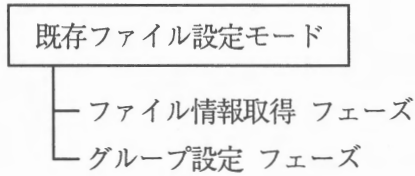 既存ファイル設定モード
ファイル情報取得 フェーズ
グループ設定 フェーズ